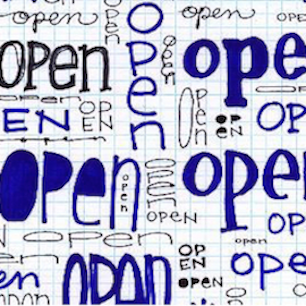 open
open
open
open
open
open
open
open
EN
OPEN
Open
OP
EN
open
OPEN
open
open
open
open
open
open
open
OPEN
open
open
open
OP
EN
OPEN
open
open
open